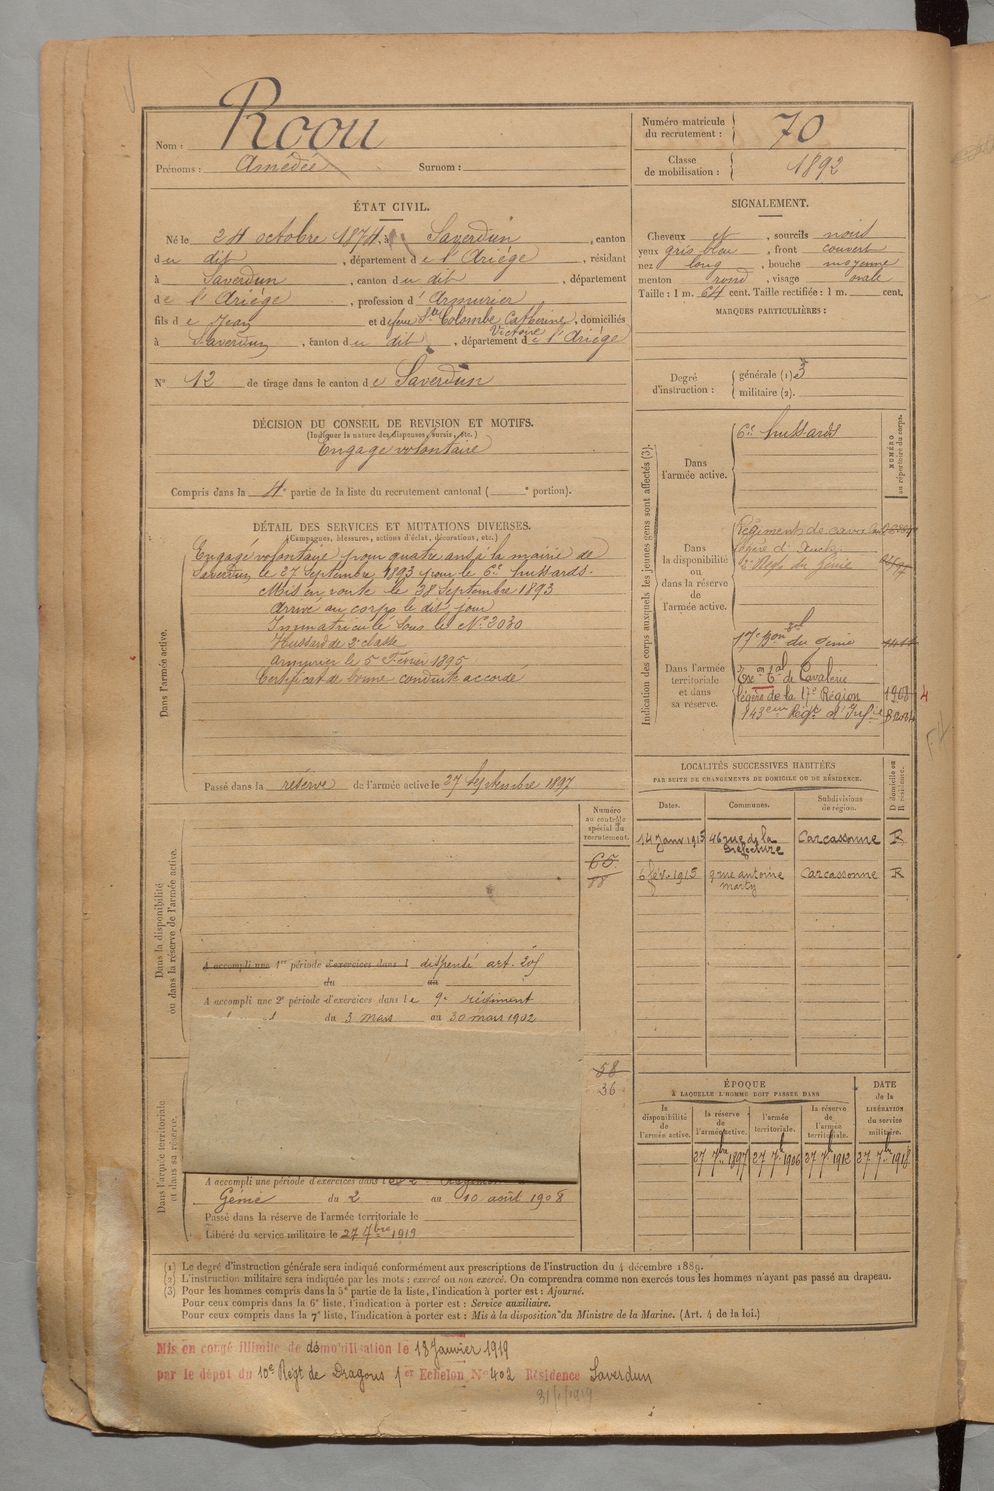 Nom : Roou
Prénoms : Amédée Surnom :
Numéro matricule du recrutement : 70
Classe de mobilisation : 1892
ÉTAT CIVIL.
Né le 24 octobre 1874, à Saverdun, canton
du dit, département de l'Ariège, résidant
à Saverdun, canton du dit, département
de l'Ariège, profession d'Armurier
fils de Jean et de feue Ste Colombe Catherine Victoire, domiciliés
à Saverdun, canton du dit, département de l'Ariège
No 12 de tirage dans le canton de Saverdun
SIGNALEMENT.
Cheveux et, sourcils noirs
yeux gris bleu, front couvert
nez long, bouche moyenne
menton rond, visage ovale
Taille : 1 m. 64 cent. Taille rectifiée : 1 m. cent.
MARQUES PARTICULIÈRES :
Degré d'instruction : générale (1) 3
militaire (2).
DÉCISION DU CONSEIL DE REVISION ET MOTIFS.
(Indiquer la nature des dispenses, sursis, etc.)
Engagé volontaire
Compris dans la 4e partie de la liste du recrutement cantonal ( e portion).
DÉTAIL DES SERVICES ET MUTATIONS DIVERSES.
(Campagnes, blessures, actions d'éclat, décorations, etc.)
Dans l'armée active.
Engagé volontaire pour quatre ans à la mairie de
Saverdun le 27 Septembre 1893 pour le 6e hussards.
Mis en route le 28 Septembre 1893
Arrivé au corps le dit jour
Immatriculé sous le No 2030
Hussard de 2e classe
armurier le 5 Février 1895
Certificat de bonne conduite accordé
Passé dans la réserve de l'armée active le 27 Septembre 1897
Indication des corps auxquels les jeunes gens sont affectés (3).
NUMÉRO au répertoire du corps.
Dans l'armée active. 6e hussards
Dans la disponibilité ou dans la réserve de l'armée active.
Régiments de cavalerie
légère d'Auch
2e Régt du Génie
Dans l'armée territoriale et dans sa réserve.
17e Bon du génie
de Cavalerie
légère de la 17e Région 1908
143eme Régt d'Infie
LOCALITÉS SUCCESSIVES HABITÉES
PAR SUITE DE CHANGEMENTS DE DOMICILE OU DE RÉSIDENCE.
Dates. Communes. Subdivisions de région. D domicile ou R résidence.
14 Janv 1915 46 rue de la Préfecture Carcassonne R
6 fév. 1915 9 rue antoine marty Carcassonne R
Dans la disponibilité ou dans la réserve de l'armée active.
Numéro au contrôle spécial du recrutement.
65
A accompli une 1re période d'exercices dans l dispensé art.
du au
A accompli une 2e période d'exercices dans le 9e régiment
du 3 mars au 30 mars 1902
58
36
Dans l'armée territoriale et dans sa réserve.
A accompli une période d'exercices dans le 2e
Génie du 2 au 10 août 1908
Passé dans la réserve de l'armée territoriale le
Libéré du service militaire le 27 7bre 1919
ÉPOQUE
À LAQUELLE L'HOMME DOIT PASSER DANS
DATE de la LIBÉRATION du service militaire.
la disponibilité de l'armée active. la réserve de l'armée active. l'armée territoriale. la réserve de l'armée territoriale.
27 7bre 1897 27 7b 1906 27 7b 1912 27 7b 1918
(1) Le degré d'instruction générale sera indiqué conformément aux prescriptions de l'instruction du 4 décembre 1889.
(2) L'instruction militaire sera indiquée par les mots : exercé ou non exercé. On comprendra comme non exercés tous les hommes n'ayant pas passé au drapeau.
(3) Pour les hommes compris dans la 5e partie de la liste, l'indication à porter est : Ajourné.
Pour ceux compris dans la 6e liste, l'indication à porter est : Service auxiliaire.
Pour ceux compris dans la 7e liste, l'indication à porter est : Mis à la disposition du Ministre de la Marine. (Art. 4 de la loi.)
Mis en congé illimité de démobilisation le 13 Janvier 1919
par le dépôt du 10e Régt de Dragons 1er Echelon No 402 Résidence Saverdun
31/1/1919